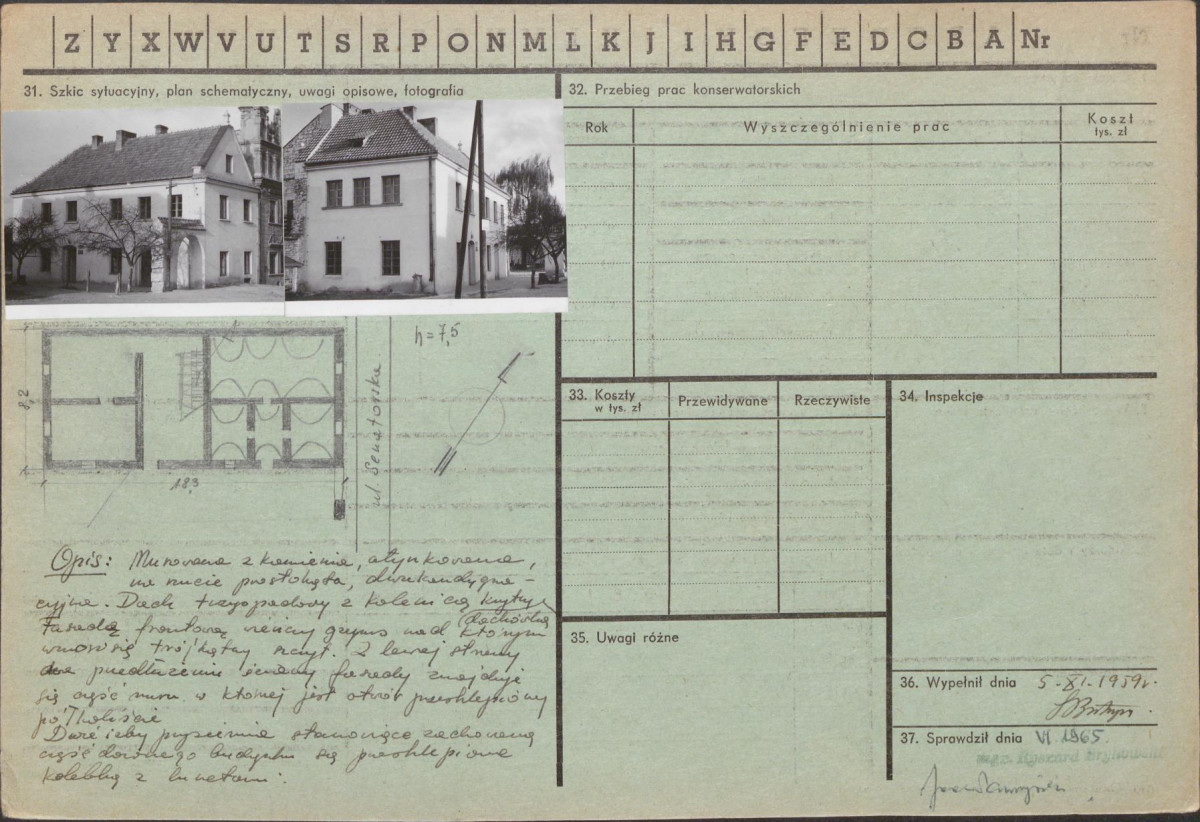 Z Y X W V U T S R P O N M L K J I H G F E D C B A Nr
31. Szkic sytuacyjny, plan schematyczny, uwagi opisowe, fotografia
8,2
18,3
ul. Senatorska
h = 7,5
Opis: Murowana z kamienia, otynkowana,
na rzucie prostokąta, dwukondygna-
cyjna. Dach trzyspadowy z kalenicą kryty
dachówką
Fasadę frontową wieńczy gzyms nad którym
wznosi się trójkątny szczyt. Z lewej strony
na przedłużeniu ściany fasady znajduje
się część muru w której jest otwór przesklepiony
półkoliście
Dwie izby przyziemia stanowiące zachowaną
część dawnego budynku są przesklepione
kolebką z lunetami.
32. Przebieg prac konserwatorskich
Rok
Wyszczególnienie prac
Koszt
tys. zł
33. Koszty
w tys. zł
Przewidywane
Rzeczywiste
34. Inspekcje
35. Uwagi różne
36. Wypełnił dnia 5-XI-1959r.
37. Sprawdził dnia VI 1965.
mgr. Ryszard Brykowski